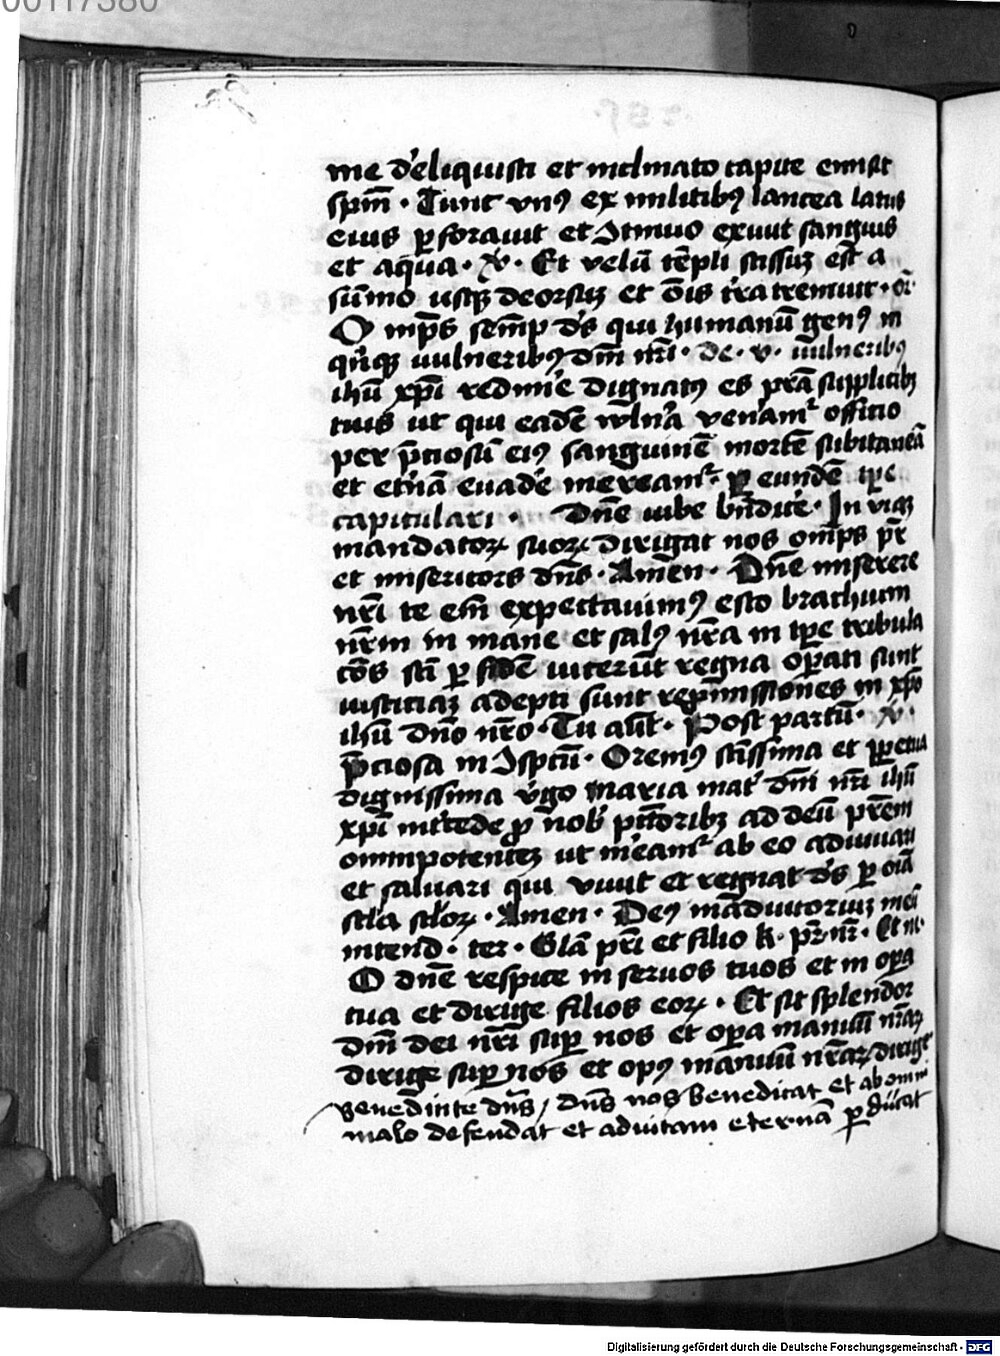 00117380
me de̛liquisti et inclinato capite emisit
sp̄m̄ · Tunc vnꝰ ex militibꝰ lancea latus
eius ꝑforauit et Itinuo exiuit sanguis
et aqua · ℣ · Et velū tēpli scissuꝫ est a
sūmo usqꝫ deorsuꝫ et ōis tr̄a tremuit · or̄
O mp̄s semꝑ ds̄ qui humanū genꝰ in
qn̄qꝫ uulneribꝰ dm̄ nr̄i · de · v · uulneribꝰ
ihū xp̄i redimē dignatꝰ es pr̄a supplicibꝫ
tuis ut qui eadē vuln̄a venam̄ officio
per p̄ciosū eiꝰ sanguinē mortē subitaneā
et et̄nā euade̛ mereamr̄ · ꝑ eundē tp̄e
capitulari · Dn̄e iube bn̄dice̛ · In vias
mandatoꝝ suoꝝ dirigat nos omp̄s pr̄
et misericors dn̄s · Amen · Dn̄e miserere
nr̄i te em̄ expectauimꝰ esto brachium
nr̄m in mane et salꝰ nr̄a in tp̄e tribula
cōis sc̄i ꝑ fidē vicerūt regna oꝑati sunt
iusticiaꝫ adepti sunt rep̄missiones in xp̄o
ihū dn̄o nr̄o · Tu aūt · Post partū · ℣ ·
p̄ciosa in Jsp̄tū · Oremꝰ sc̄issima et ꝑpetua
dignissima v̄go maria mat̄ dm̄ nr̄i ihū
xp̄i int̄cede ꝓ nob̄ pctōribꝫ ad deū pr̄em
omnipotenteꝫ ut m̄eamr̄ ab eo adiuuari
et saluari qui viuit et regnat ds̄ ꝑ oīa
sc̄la sc̄loꝝ · Amen · Deꝰ in ad̄iutoriuꝫ meū
intend · ter · Glā pr̄i et filio k · pr̄ nr̄ · Et ne
O dn̄e respice in seruos tuos et in oꝑa
tua et dirige filios eoꝝ · Et sit splendor
dm̄ dei nr̄i suꝑ nos et oꝑa manuū nr̄aꝝ
dirige suꝑ nos et opꝰ manuū nr̄aꝝ dirige
benedicite dn̄s / dn̄s nos benedicat et ab omni
malo defendat et ad vitam eternā ꝑducat
Digitalisierung gefördert durch die Deutsche Forschungsgemeinschaft - DFG